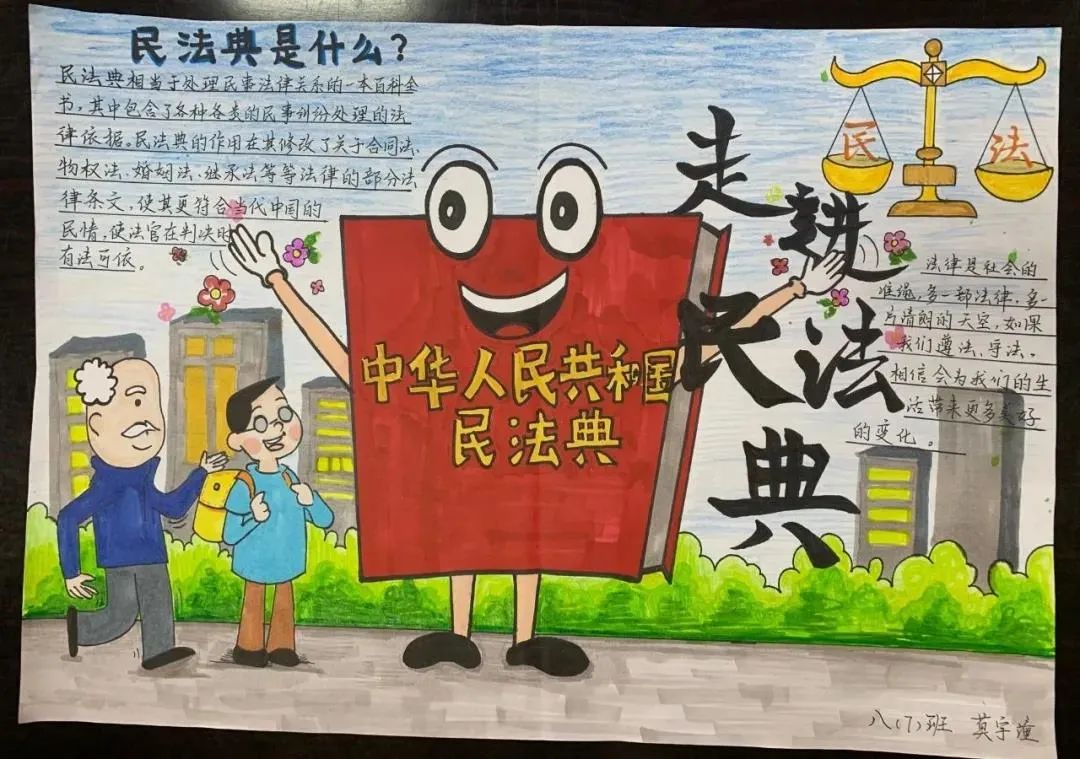 民法典是什么?
民法典相当于处理民事法律关系的一本百科全
书,其中包含了各种各类的民事纠纷处理的法
律依据。民法典的作用在其修改了关于合同法、
物权法、婚姻法、继承法等等法律的部分法
律条文,使其更符合当代中国的
民情,使法官在判决时
有法可依。
中华人民共和国
民法典
走进
民法
典
民 法
法律是社会的
准绳,多一部法律,多一
片清朗的天空,如果
我们遵法、守法。
相信会为我们的生
活带来更多美好
的变化。
八(7)班 莫宇潼